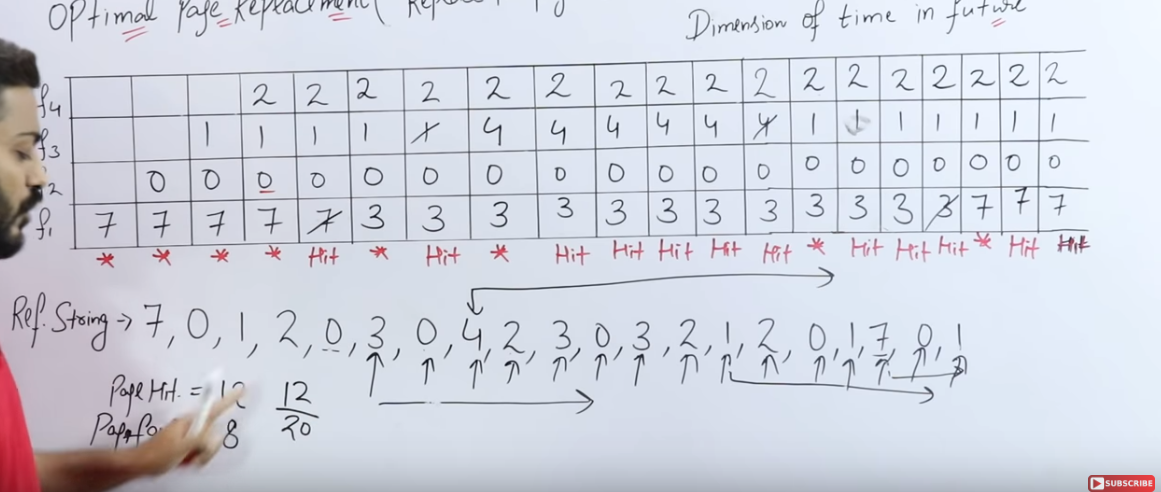 Optimal Page Replacement ( Replace
Dimension of time in future
f4 2 2 2 2 2 2 2 2 2 2 2 2 2 2 2 2 2
f3 1 1 1 1 1 4 4 4 4 4 4 1 1 1 1 1 1 1
2 0 0 0 0 0 0 0 0 0 0 0 0 0 0 0 0 0 0 0
f1 7 7 7 7 7 3 3 3 3 3 3 3 3 3 3 3 3 7 7 7
* * * * Hit * Hit * Hit Hit Hit Hit Hit * Hit Hit Hit * Hit Hit
Ref. String → 7, 0, 1, 2, 0, 3, 0, 4, 2, 3, 0, 3, 2, 1, 2, 0, 1, 7, 0, 1
Page Hit. = 12 12/20
8
SUBSCRIBE